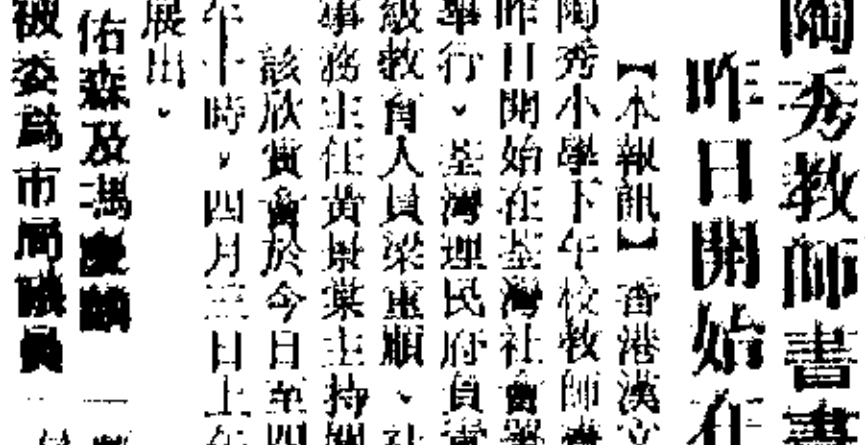 陶秀教師書畫
昨日開始在
【本報訊】香港漢文
陶秀小學下午校教師書
昨日開始在荃灣社會署
舉行、荃灣理民府負責
級教育人員梁重順、社
事務主任黃景業主持開
該欣賞會於今日至四
午十時，四月三日上午
展出。
佑森及馮慶麟
被委為市局議員